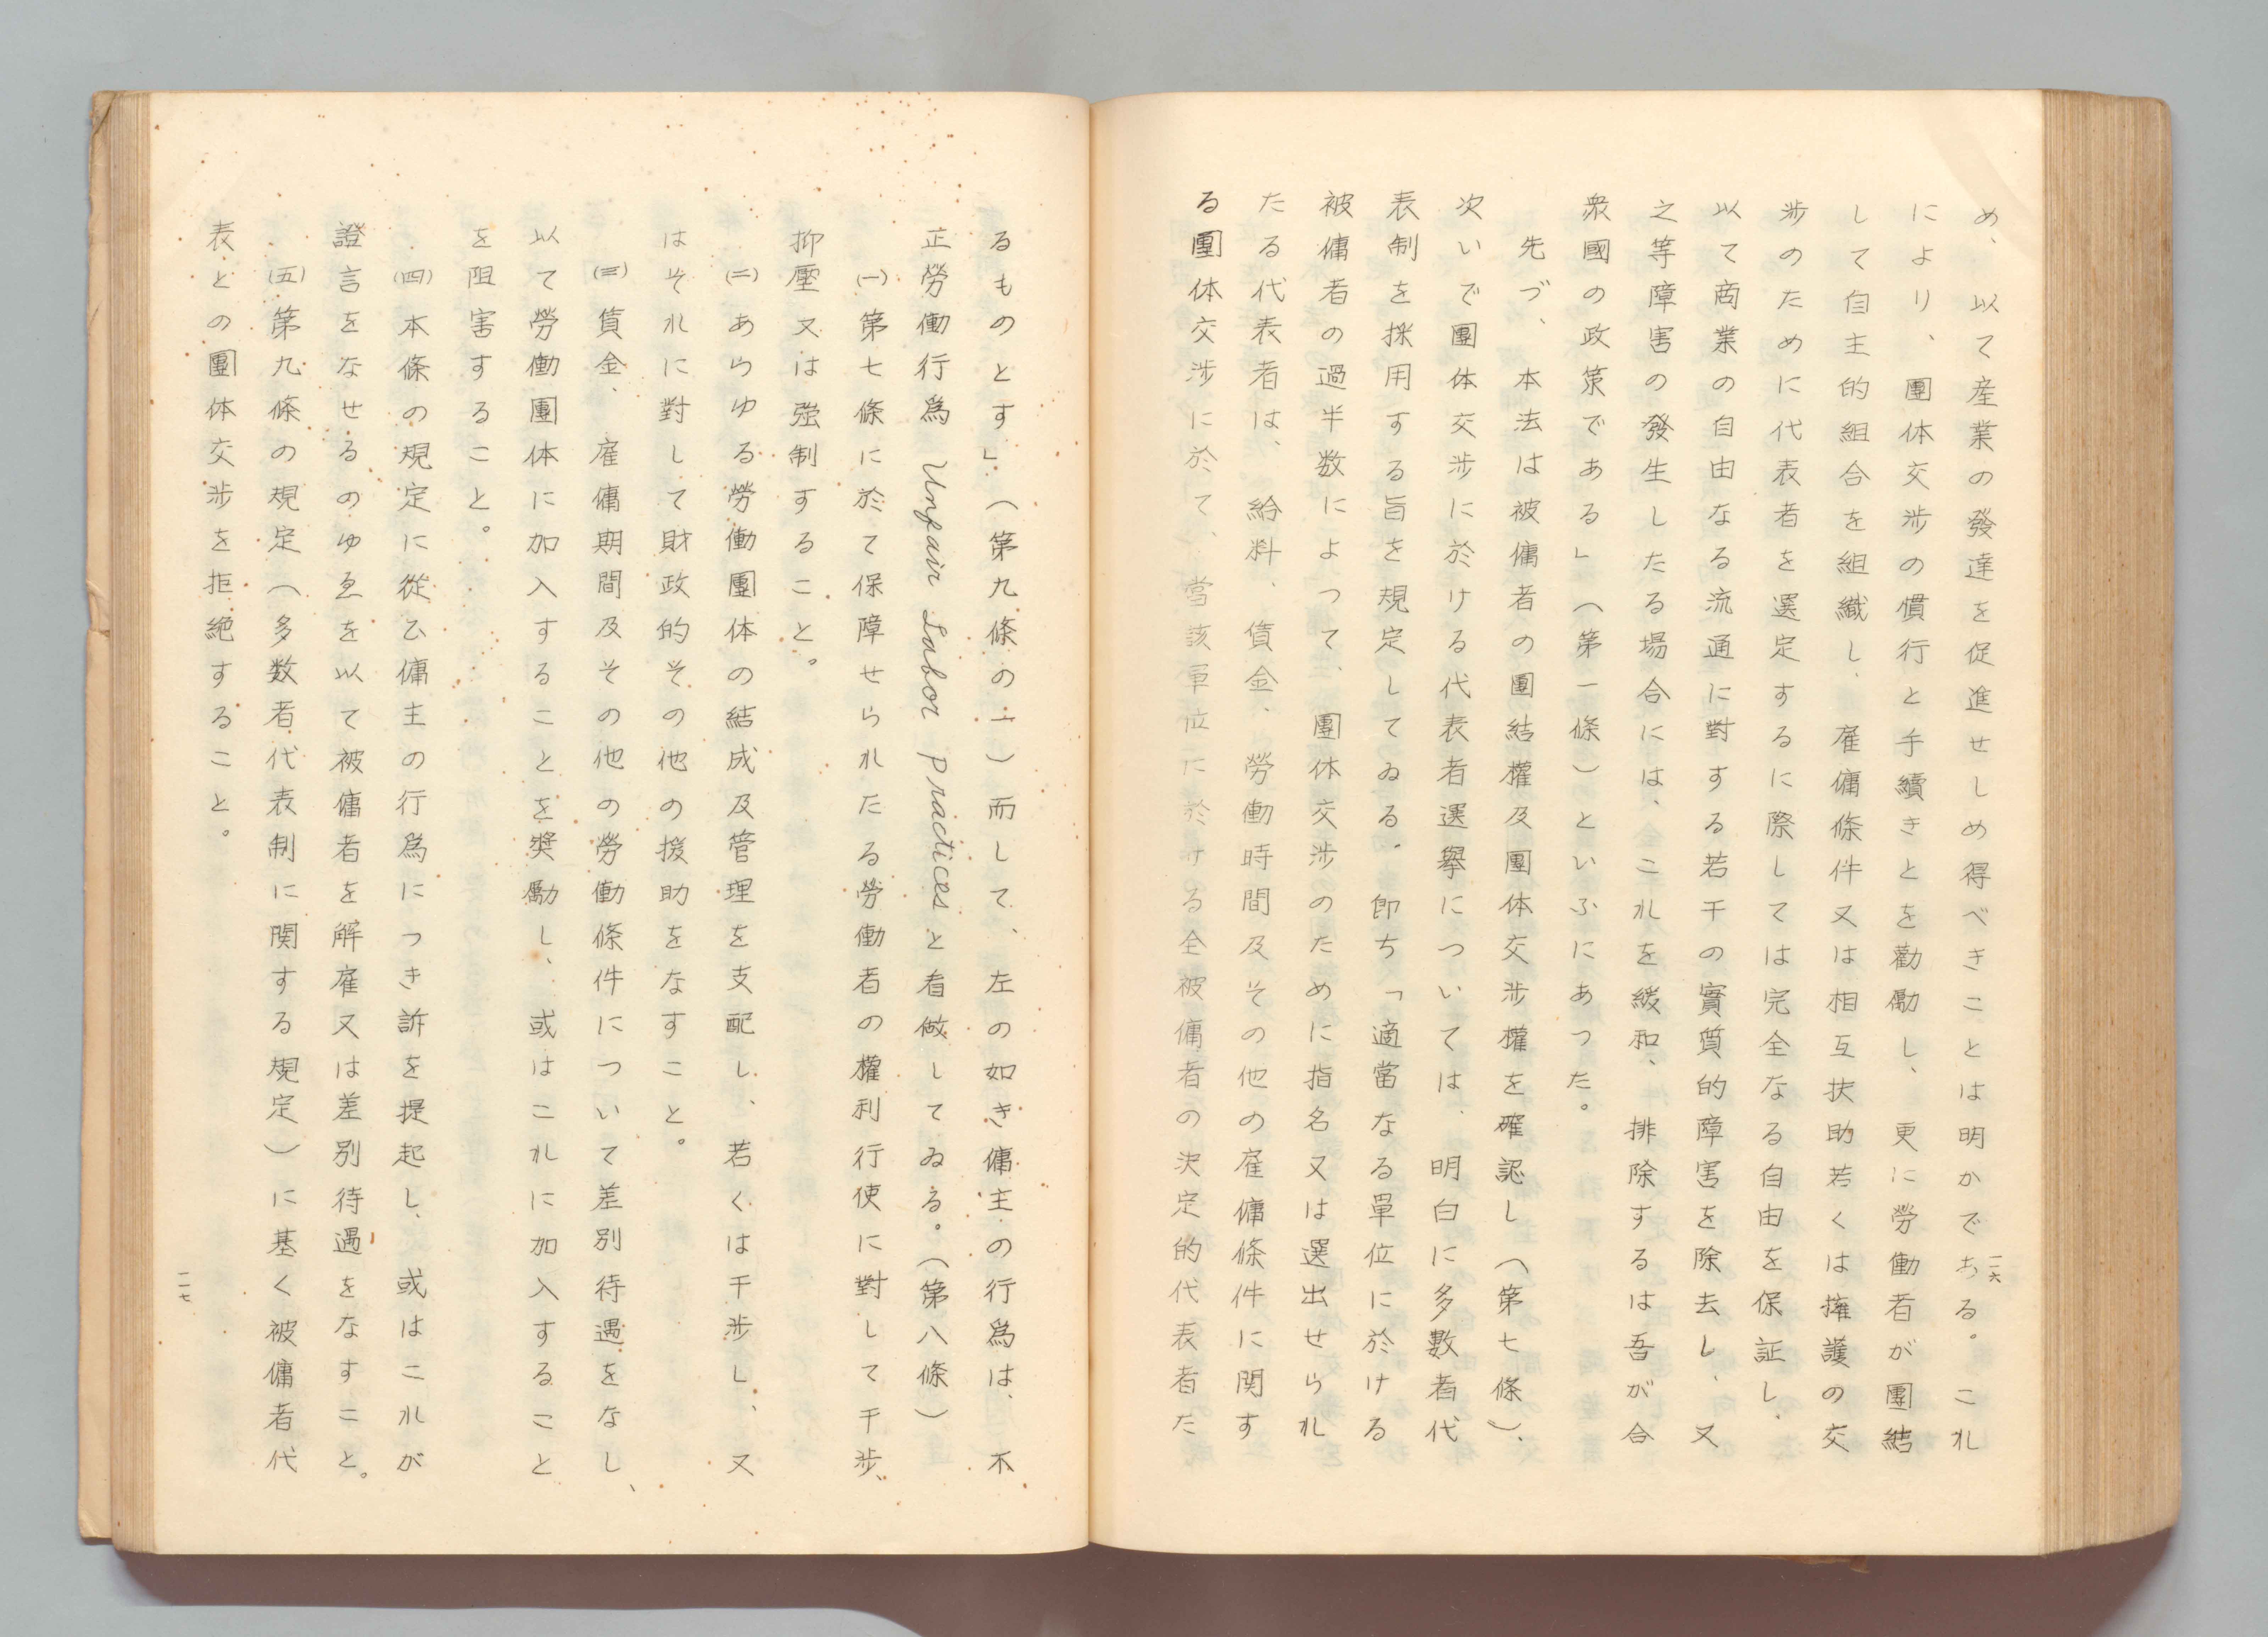 め、以て産業の發達を促進せしめ得べきことは明かである。これ
により、團体交渉の慣行と手續きとを勸勵し、更に労働者が團結
して自主的組合を組織し、雇傭條件又は相互扶助若くは擁護の交
渉のために代表者を選定するに際しては完全なる自由を保証し、
以て商業の自由なる流通に對する若干の實質的障害を除去し、又
之等障害の發生したる場合には、これを緩和、排除するは吾が合
衆國の政策である」（第一條）といふにあった。
先づ、本法は被傭者の團結權及團体交渉權を確認し（第七條）、
次いで團体交渉に於ける代表者選擧については、明白に多數者代
表制を採用する旨を規定してゐる。即ち「適當なる單位に於ける
被傭者の過半数によって、團体交渉のために指名又は選出せられ
たる代表者は、給料、賃金、勞働時間及その他の雇傭條件に関す
る團体交渉に於て、當該單位に於ける全被傭者の決定的代表者た
一一六
るものとす」（第九條の一）而して、左の如き傭主の行爲は、不
正勞働行爲 Unfair Labor practices と看做してゐる。（第八條）
(一)第七條に於て保障せられたる勞働者の權利行使に對して干渉、
抑壓又は強制すること。
(二)あらゆる勞働團体の結成及管理を支配し、若くは干渉し、又
はそれに對して財政的その他の援助をなすこと。
(三)賃金、雇傭期間及その他の勞働條件について差別待遇をなし、
以て勞働團体に加入することを奨勵し、或はこれに加入すること
を阻害すること。
(四)本條の規定に從ひ傭主の行爲につき訴を提起し、或はこれが
證言をなせるのゆゑを以て被傭者を解雇又は差別待遇をなすこと。
(五)第九條の規定（多数者代表制に関する規定）に基く被傭者代
表との團体交渉を拒絶すること。
一一七